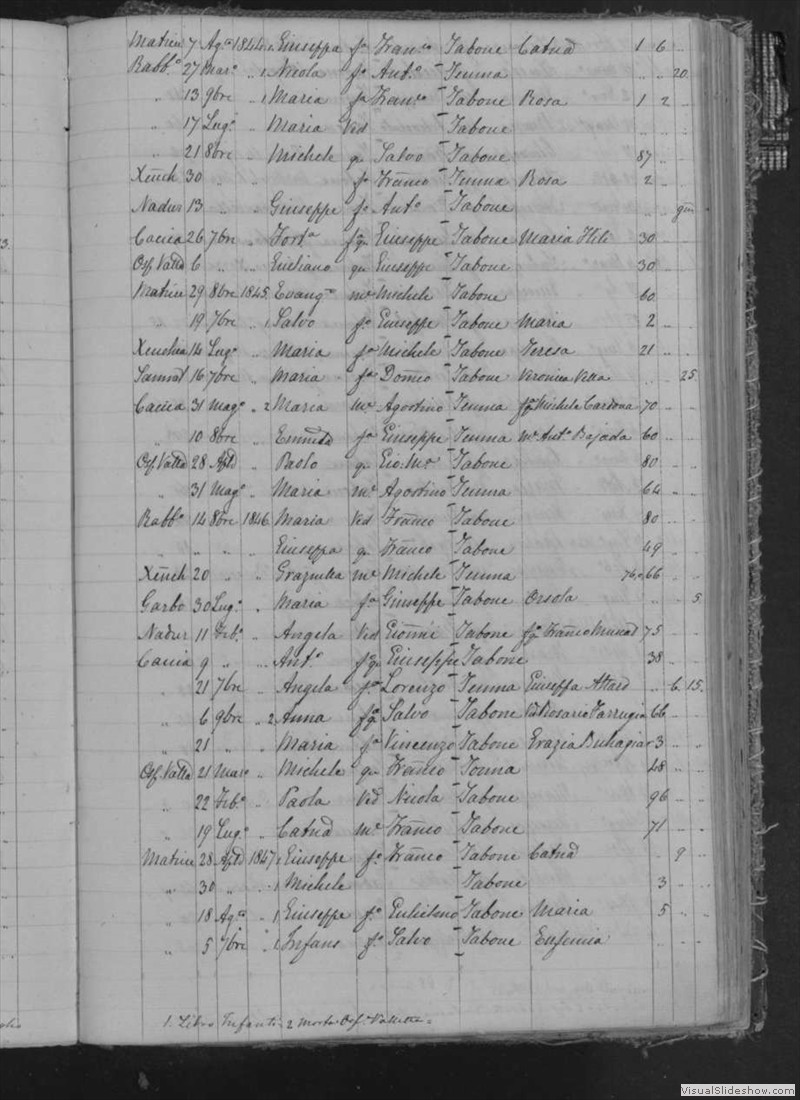 Matrice 7 Ago 1844 1 Giuseppa fa Franco Tabone Catnd 1 6 ..
Rabbo 27 Marzo .. 1 Nicola fo Anto Tenma .. .. 20
.. 13 9bre .. 1 Maria fa Franco Tabone Rosa 1 2 ..
.. 17 Lugo .. Maria Ved Tabone .. .. ..
.. 21 8bre .. Michele qm Salvo Tabone 87 .. ..
Xeuch 30 .. .. fo Franco Tenma Rosa 2 .. ..
Nadur 13 .. .. Giuseppe fo Anto Tabone .. .. gni
Caccia 26 7bre .. Forta Giuseppe Tabone Maria Hili 30 .. ..
Osp Valtta 6 .. .. Giuliano qm Giuseppe Tabone 30 .. ..
Matrice 29 8bre 1845 Evango me Michele Tabone 60 .. ..
.. 19 7bre .. 1 Salvo fo Giuseppe Tabone Maria 2 .. ..
14 Lugo .. Maria fa Michele Tabone Teresa 21 .. ..
Sannat 16 7bre .. Maria fa Domco Tabone Veronica Vella .. .. 25
Caccia 31 Mago .. 2 Maria me Agostino Tenma Michele Cardona 70 .. ..
.. 10 8bre .. fa Giuseppe Tenma me Anto Bajada 60 .. ..
Osp Valtta 28 Aple .. Paolo qm Gio.Ma Tabone 80 .. ..
.. 31 Mago .. Maria me Agostino Tenma 64 .. ..
Rabbo 14 8bre 1846 Maria Ved Franco Tabone 80 .. ..
.. .. .. .. Giuseppa qm Franco Tabone 49 .. ..
Xeuch 20 .. .. Graziulla me Michele Tenma 76 o 66 .. ..
Garbo 30 Lugo .. Maria fa Giuseppe Tabone Orsola .. .. 5
Nadur 11 Febo .. Angela Ved Gionni Tabone Franco Muscat 75 .. ..
Caccia 9 .. .. Anto Giuseppe Tabone 38 .. ..
.. 21 7bre .. Angela fa Lorenzo Tenma Giuseppa Attard .. 6 15
.. 6 9bre .. 2 Anna Salvo Tabone Ved Rosario Farrugia 66 .. ..
.. 21 .. .. Maria fa Vincenzo Tabone Grazia Buhagiar 3 .. ..
Osp Valtta 21 Maro .. Michele qm Franco Tonna 48 .. ..
.. 22 Febo .. Paola Ved Nicola Tabone 96 .. ..
.. 19 Lugo .. Catnd me Franco Tabone 71 .. ..
Matrice 28 Aple 1847 1 Giuseppe fo Franco Tabone Catnd .. 9 ..
.. 30 .. .. 1 Michele Tabone 3 .. ..
.. 18 Ago .. 1 Giuseppe fo Tabone Maria 5 .. ..
.. 5 7bre .. 1 Infans fo Salvo Tabone Eufemia .. .. ..
1. Libro Infanti 2 morta Osp. Valletta
VisualSlideshow.com